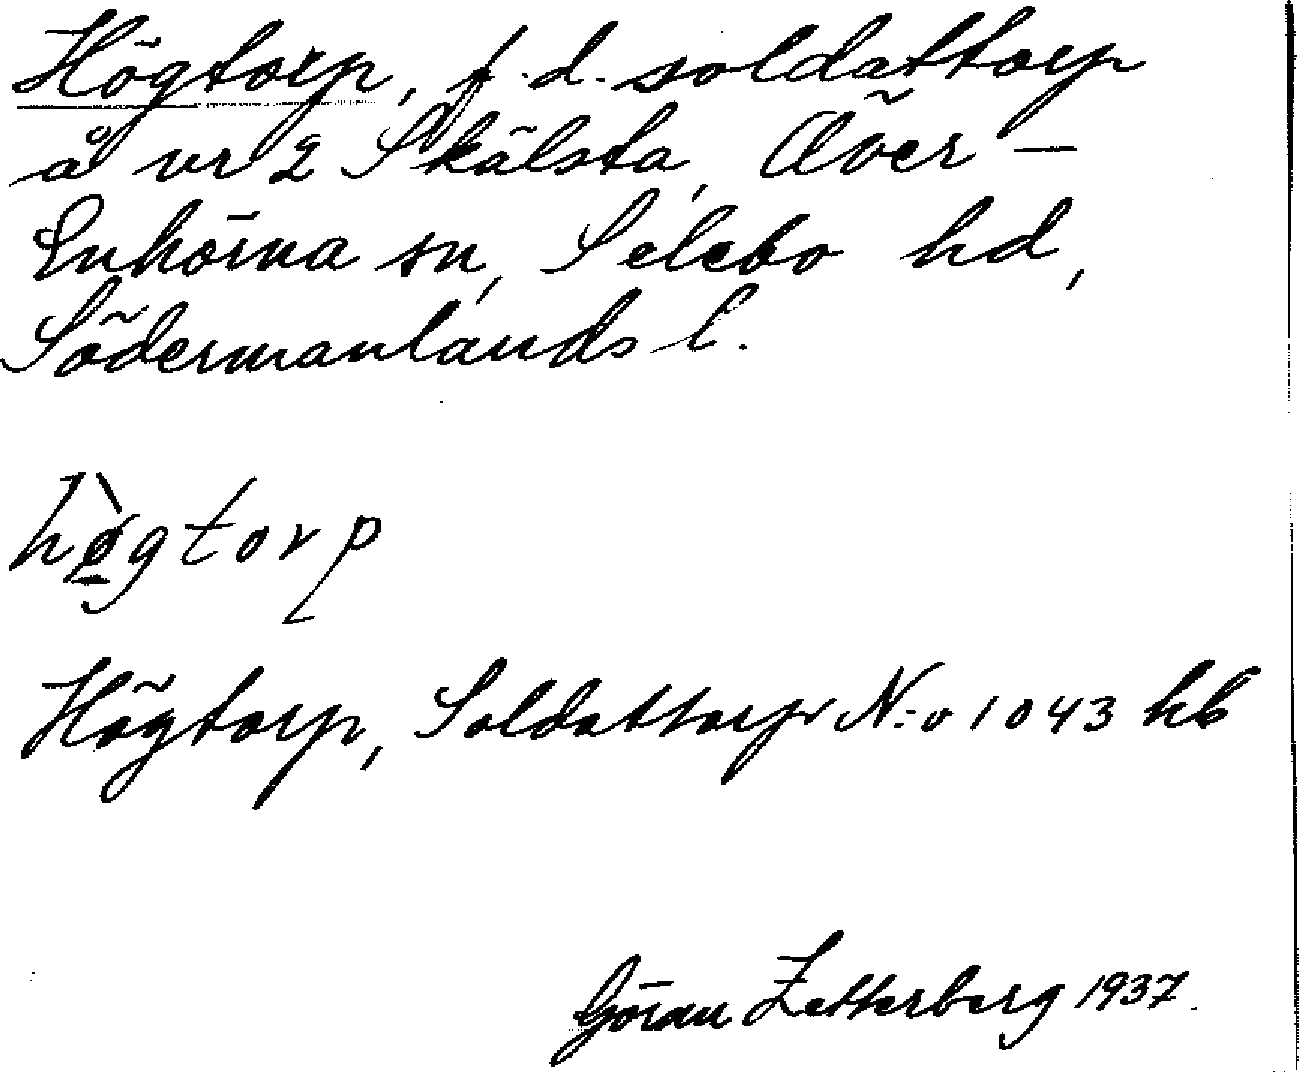 Högtorp, f.d. soldattorp
å nr 2 Skälsta, Över-
Enhörna sn, Selebo hd,
Södermanlands l.
hø̀gtorp
Högtorp, Soldattorp N:o 1043 kb
Göran Zetterberg 1937.